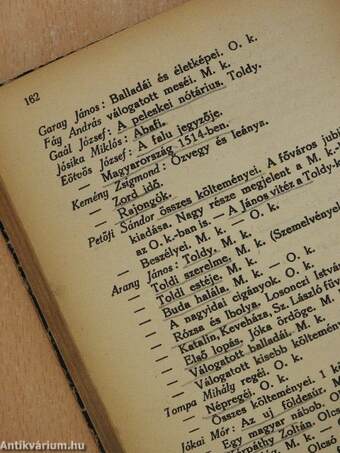 162
Garay János: Balladái és életképei. O. k.
Fáy András válogatott meséi. M. k.
Gaál József: A peleskei nótárius. Toldy.
Jósika Miklós: Abafi.
Eötvös József: A falu jegyzője.
— Magyarország 1514-ben.
Kemény Zsigmond: Özvegy és leánya.
— Zord idő.
— Rajongók.
Petőfi Sándor összes költeményei. A főváros jubi
kiadása. Nagy része megjelent a M. k.-
az O. k.-ban is. — A János vitéz a Toldy-k
— Beszélyei. M. k. — O. k.
Arany János: Toldy. M. k. (Szemelvények
— Toldi szerelme. M. k.
— Toldi estéje. M. k.
— Buda halála. M. k.
— A nagyidai cigányok. O. k.
— Rózsa és Ibolya. Losonczi István
— Katalin, Keveháza, Sz. László füve
— Első lopás, Jóka ördöge. M. k.
— Válogatott balladái. M. k.
— Válogatott kisebb költemén
Tompa Mihály regéi. O. k.
— Népregéi. O. k.
— Összes költeményei. 1 k
Jókai Mór: Az uj földesúr. M.
— Egy magyar nábob. O
— Kárpáthy Zoltán. Olc
k. Olcsó
Antikvárium.hu